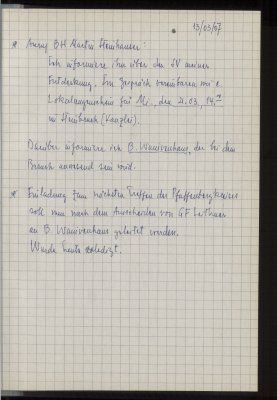 13/03/07
* Anruf BH Martin Steinhauser:
Ich informiere ihn über den SV meiner
Entdeckung. Im Gespräch vereinbaren wir e.
Lokalaugenschein für Mi., den 21.03., 14.00
in Steinbruch (Kanzlei).
Darüber informiere ich B. Wannivenhaus, der bei dem
Besuch anwesend sein wird.
* Einladung zum nächsten Treffen des Pfaffenbergkreises
soll nun nach dem Ausscheiden von GF
an B. Wannivenhaus gelistet werden.
Wurde heute erledigt.